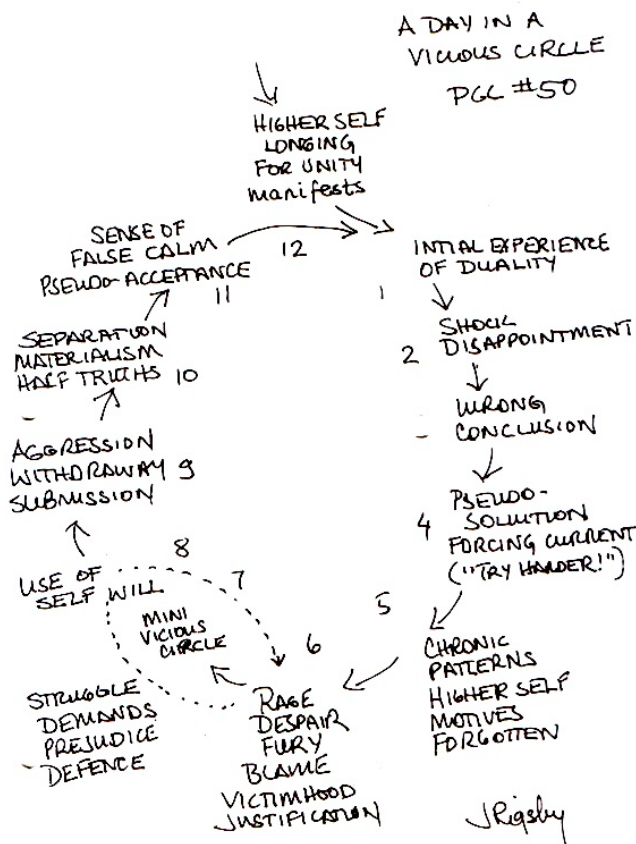 A DAY IN A
VICIOUS CIRCLE
PGL #50
HIGHER SELF
LONGING
FOR UNITY
manifests
12
INTIAL EXPERIENCE
OF DUALITY
1
SHOCK
DISAPPOINTMENT
2
WRONG
CONCLUSION
PSEUDO-
SOLUTION
FORCING CURRENT
("TRY HARDER!")
4
5
CHRONIC
PATTERNS
HIGHER SELF
MOTIVES
FORGOTTEN
6
RAGE
DESPAIR
FURY
BLAME
VICTIMHOOD
JUSTIFICATION
MINI
VICIOUS
CIRCLE
7
8
STRUGGLE
DEMANDS
PREJUDICE
DEFENCE
USE OF
SELF WILL
AGGRESSION
WITHDRAWAY 9
SUBMISSION
SEPARATION
MATERIALISM
HALF TRUTHS 10
SENSE OF
FALSE CALM
PSEUDO-ACCEPTANCE
11
JRigsby